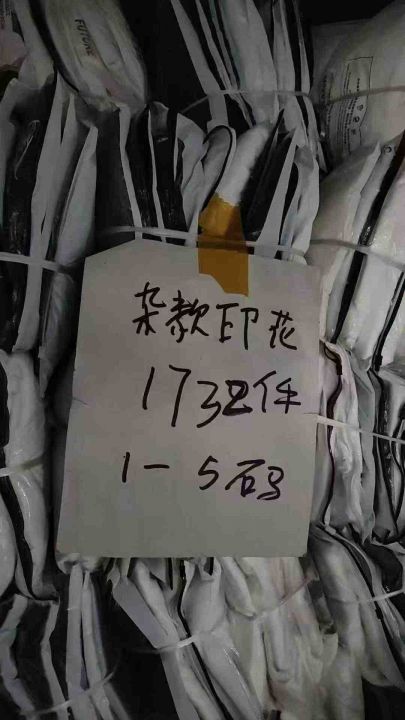 FUTURE
杂款印花
1732件
1-5码